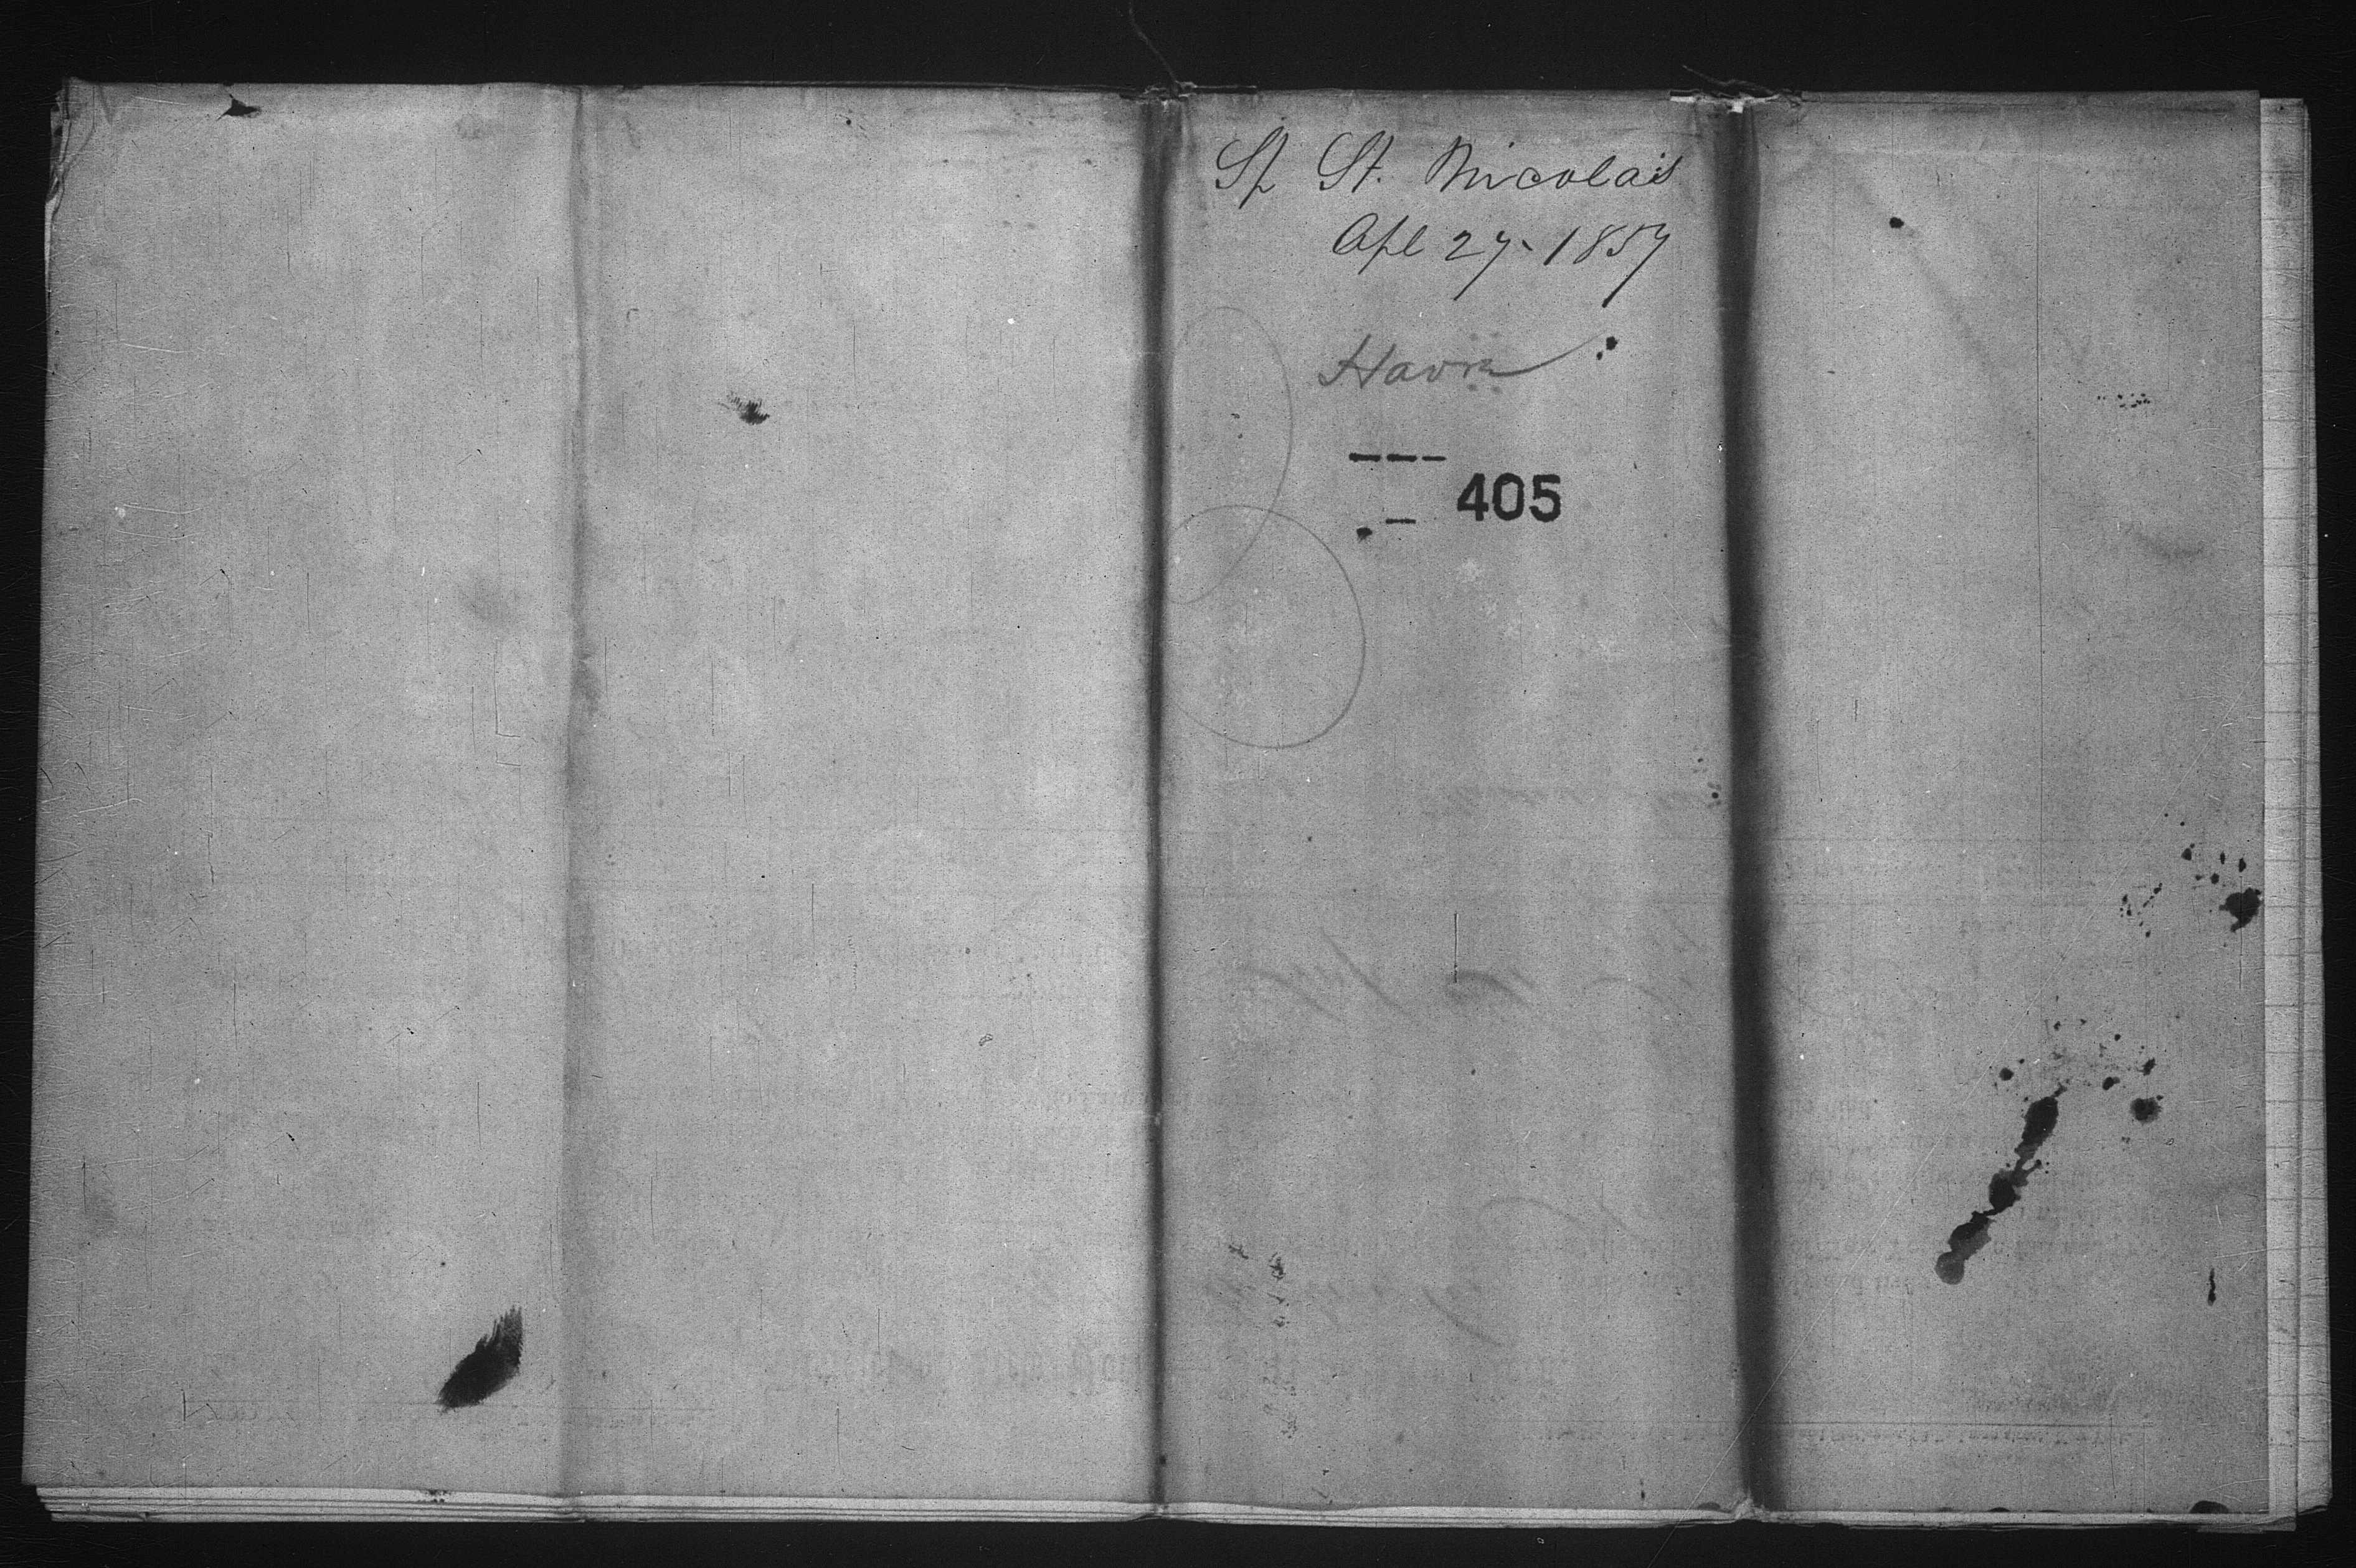 Sh St. Nicolas
Apl 27 - 1857
Havre
405